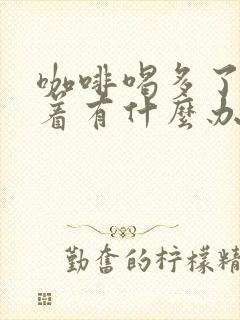 咖啡喝多了
着有什麼办
勤奋的柠檬精